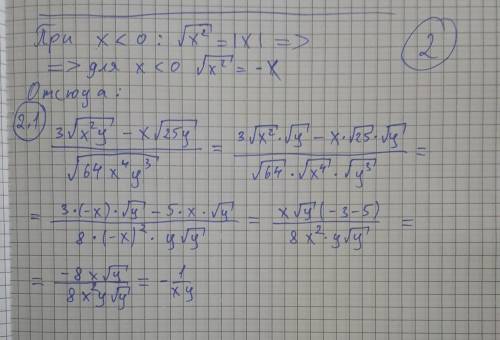 При x < 0 : √x² = |x| =>
=> для x < 0 √x² = -x
2
Отсюда :
2.1
(3√(x²y) - x√(25y)) / √(64x⁴y³) = (3√x² · √y - x · √25 · √y) / (√64 · √x⁴ · √y³) =
= (3 · (-x) · √y - 5 · x · √y) / (8 · (-x)² · y√y) = (x√y (-3-5)) / (8x² · y√y) =
= (-8x√y) / (8x²y√y) = - 1/(xy)